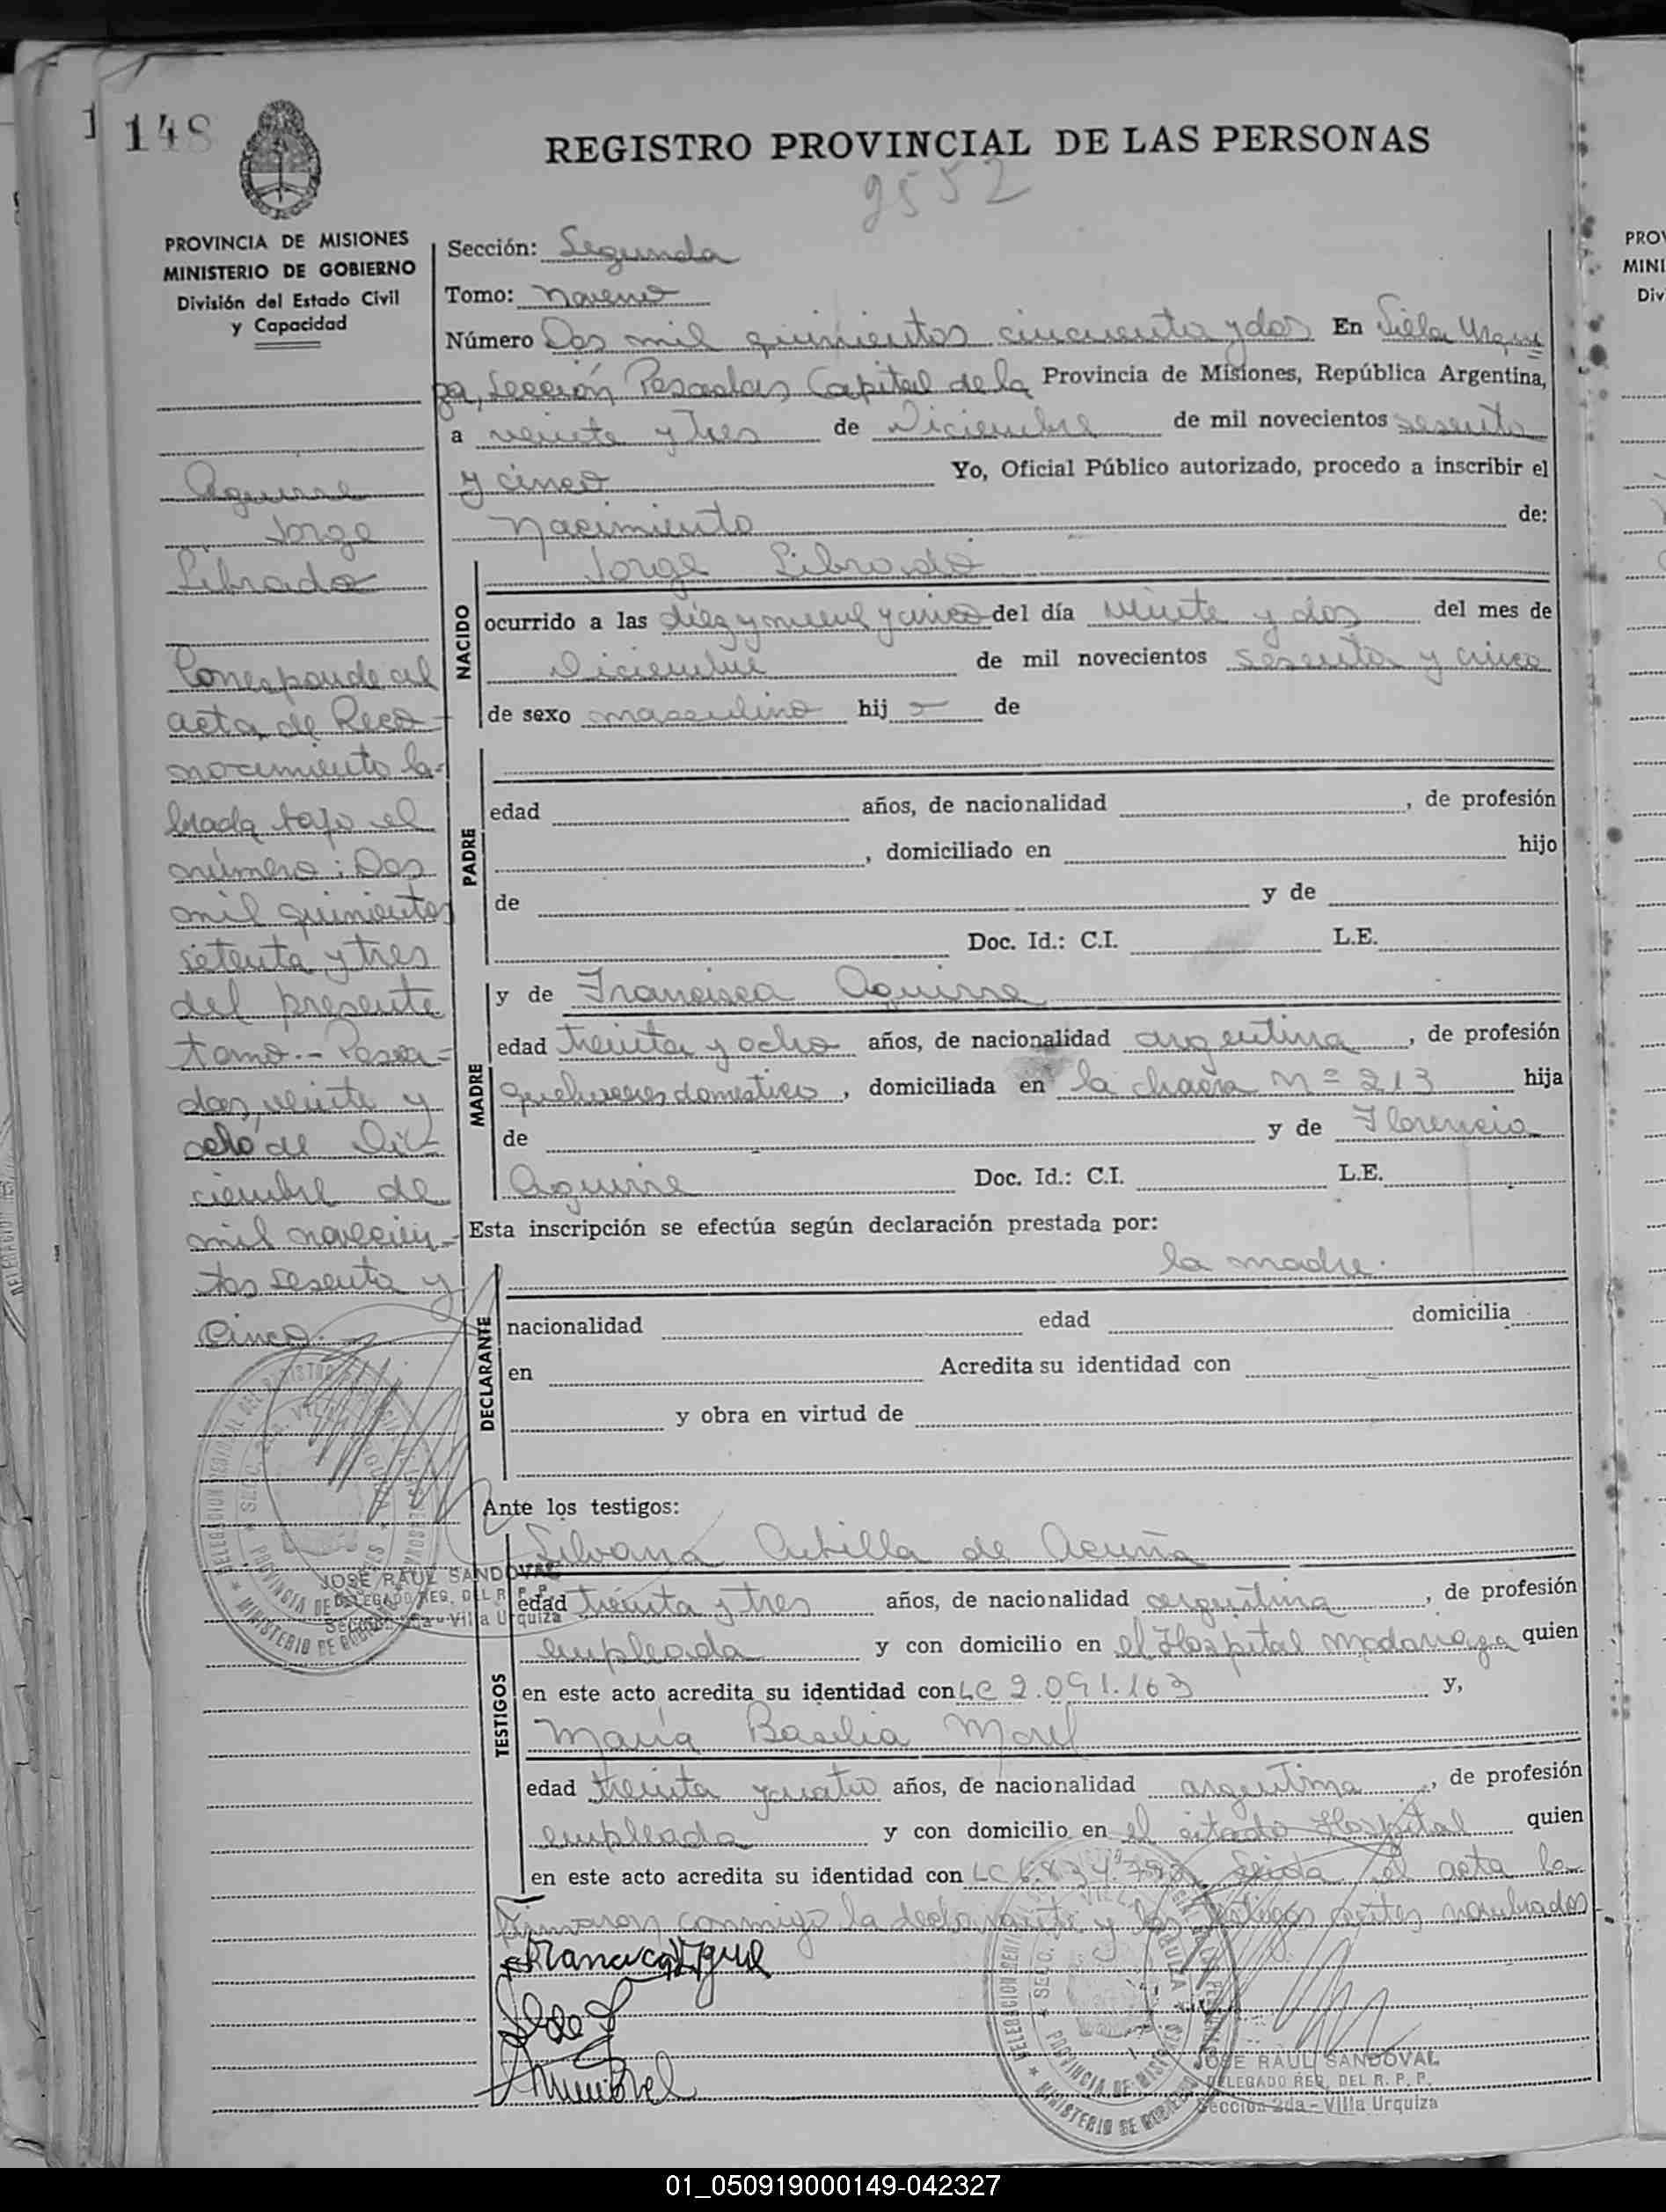 148
REGISTRO PROVINCIAL DE LAS PERSONAS
2552
PROVINCIA DE MISIONES
MINISTERIO DE GOBIERNO
División del Estado Civil
y Capacidad
Aguirre
Jorge
Librado
Corresponde al
acta de Reco-
nocimiento la-
brada bajo el
número: Dos
mil quinientos
setenta y tres
del presente
tomo.- Posa-
das, veinte y
ocho de Di-
ciembre de
mil novecien-
tos sesenta y
Cinco.
JOSE RAUL SANDOVAL
DELEGADO REG. DEL R. P. P.
Sección 2da - Villa Urquiza
Sección: Segunda
Tomo: Noveno
Número Dos mil quinientos cincuenta y dos En Villa Urqui
za, Sección Posadas Capital de la Provincia de Misiones, República Argentina,
a veinte y tres de Diciembre de mil novecientos sesenta
y cinco Yo, Oficial Público autorizado, procedo a inscribir el
Nacimiento de:
NACIDO
Jorge Librado
ocurrido a las diez y nueve y cinco del día veinte y dos del mes de
Diciembre de mil novecientos sesenta y cinco
de sexo masculino hij o de
PADRE
edad años, de nacionalidad , de profesión
, domiciliado en hijo
de y de
Doc. Id.: C.I. L.E.
MADRE
y de Francisca Aguirre
edad treinta y ocho años, de nacionalidad argentina , de profesión
quehaceres domestico , domiciliada en la chacra Nº 213 hija
de y de Florencia
Aguirre Doc. Id.: C.I. L.E.
Esta inscripción se efectúa según declaración prestada por:
DECLARANTE
la madre.
nacionalidad edad domicilia
en Acredita su identidad con
y obra en virtud de
Ante los testigos:
TESTIGOS
Silvana de Acuña
edad treinta y tres años, de nacionalidad argentina , de profesión
empleada y con domicilio en el Hospital Madariaga quien
en este acto acredita su identidad con LC 2.091.163 y,
María Basilia Morel
edad treinta y cuatro años, de nacionalidad argentina , de profesión
empleada y con domicilio en el citado Hospital quien
en este acto acredita su identidad con LC Leida el acta la
firmaron conmigo la declarante y los testigos antes nombrados
JOSE RAUL SANDOVAL
DELEGADO REG. DEL R. P. P.
Sección 2da - Villa Urquiza
01_050919000149-042327